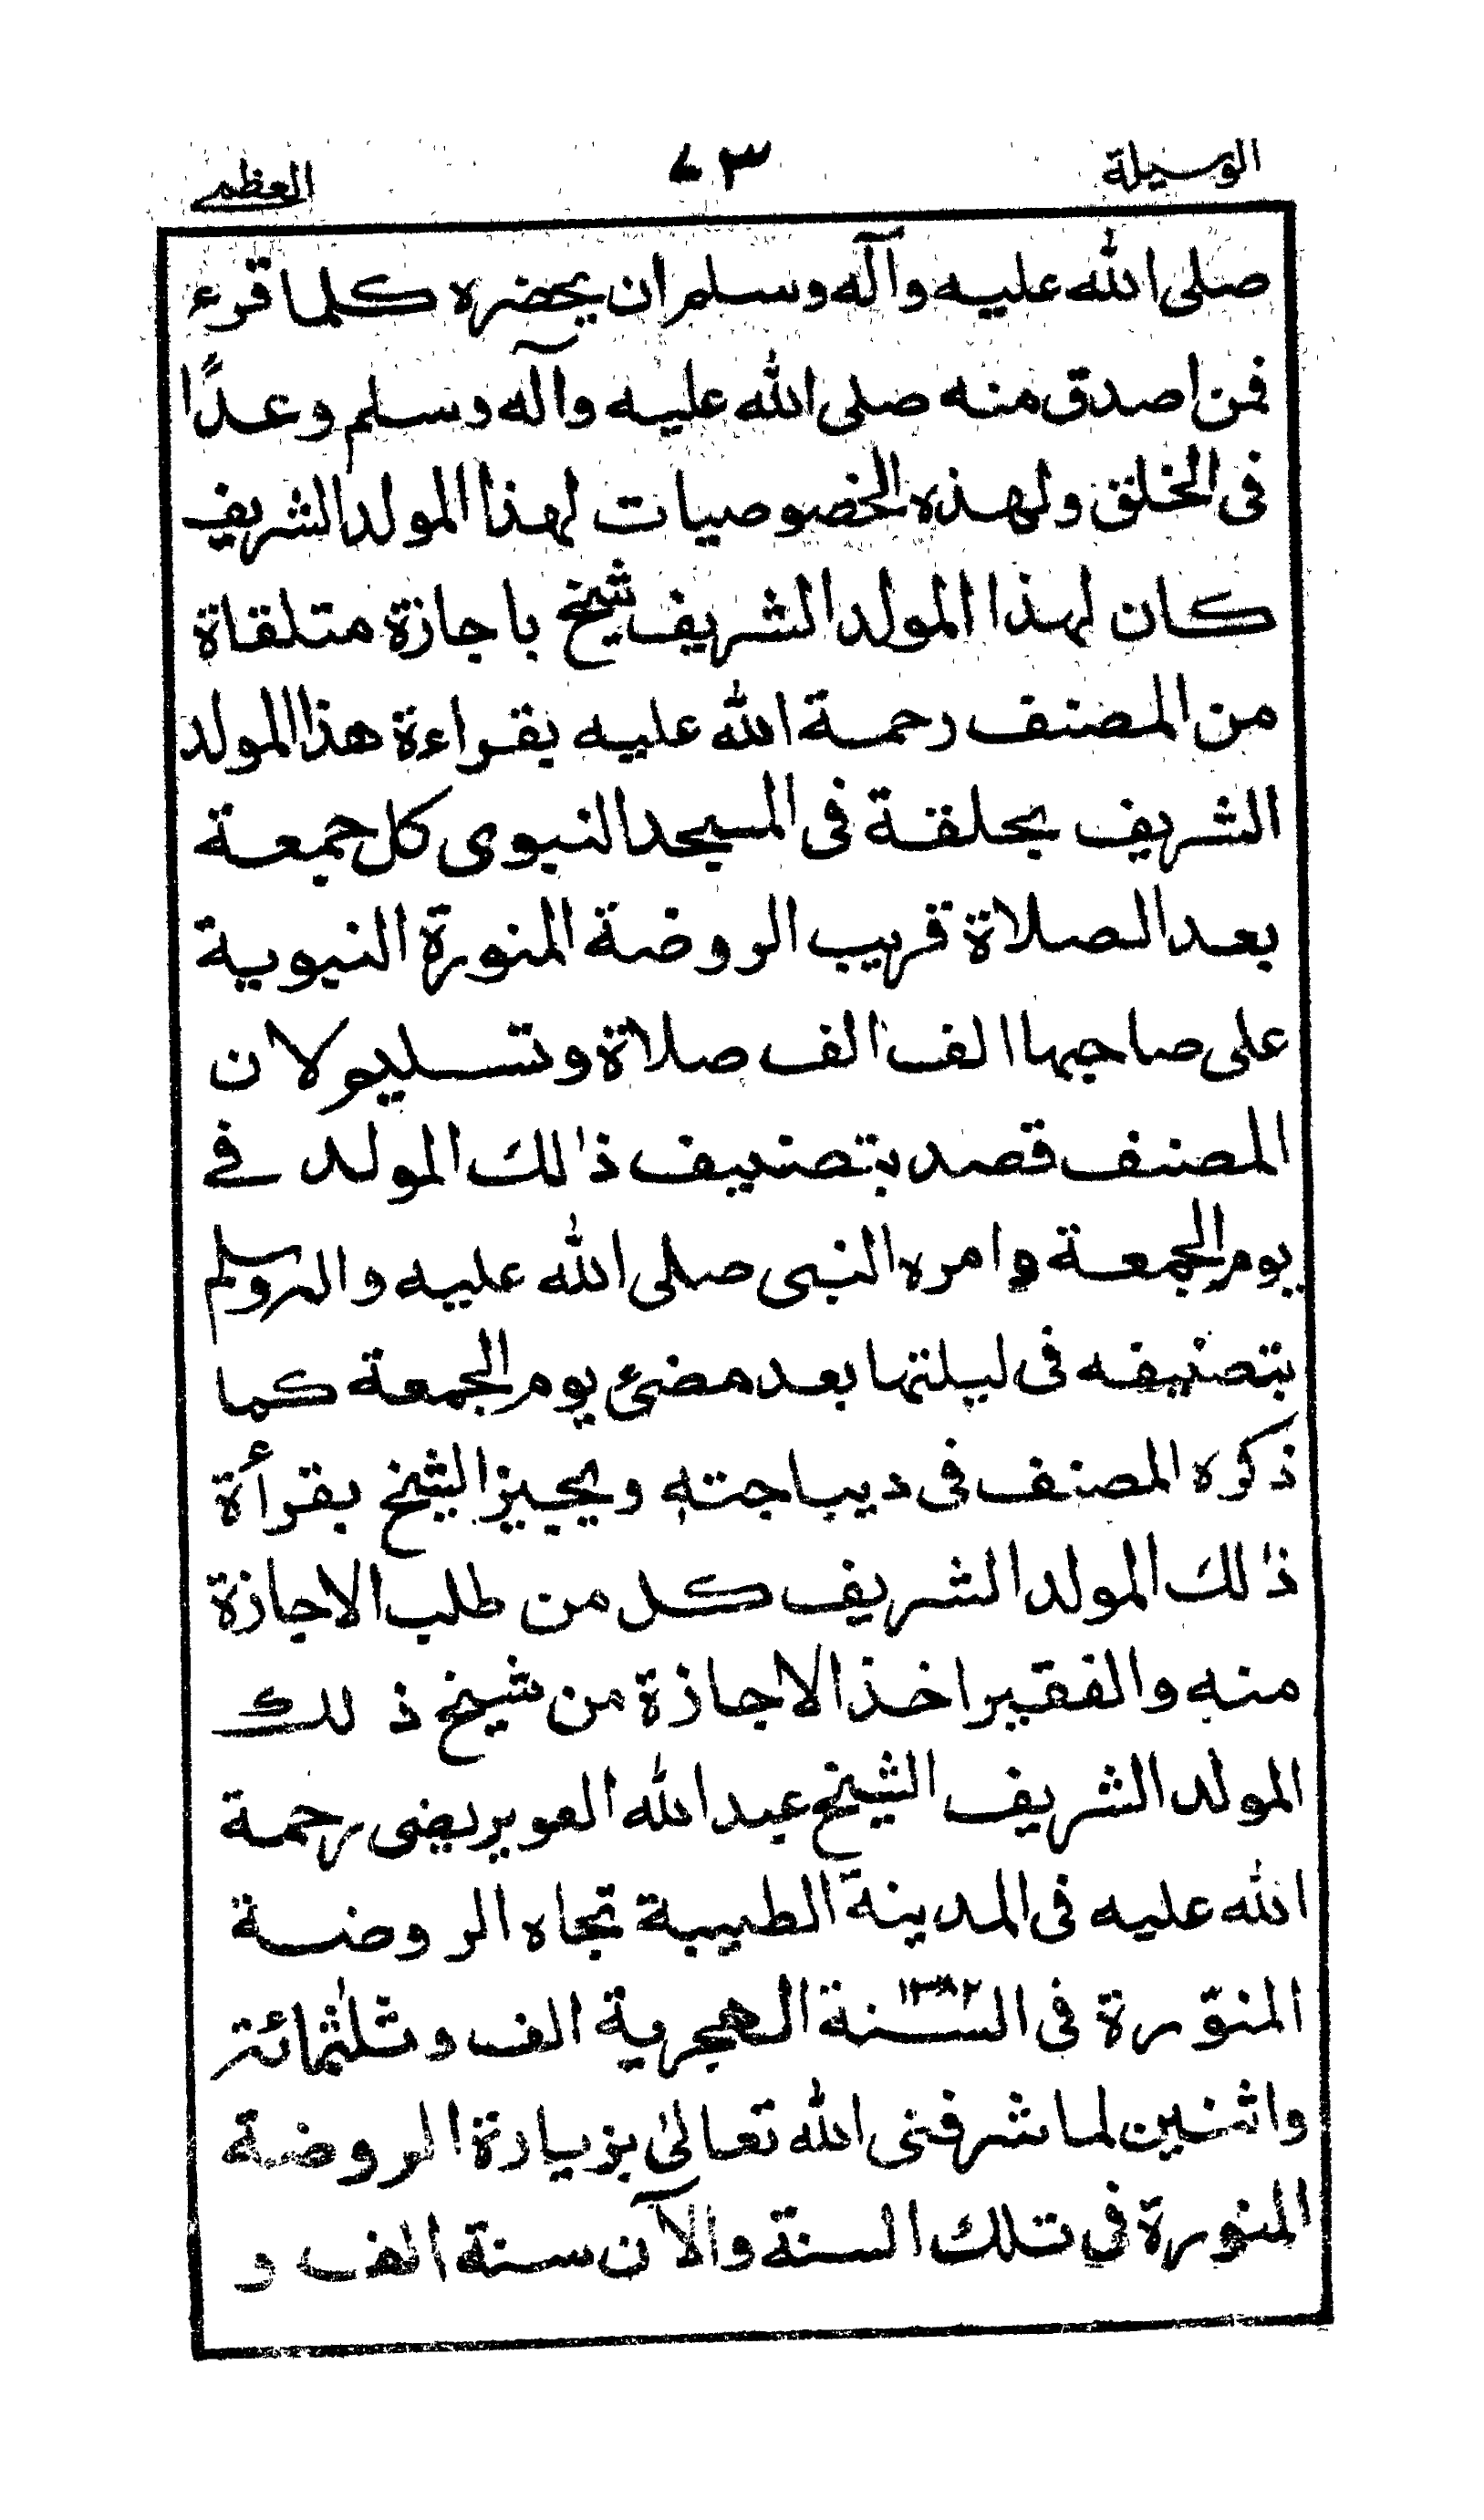 الوسيلة ٧٣ العظمى
صلى الله عليه وآله وسلم ان يحضره كلما قرء
فمن اصدق منه صلى الله عليه وآله وسلم وعدًا
فى الخلق ولهذه الخصوصيات لهذا المولد الشريف
كان لهذا المولد الشريف شيخ باجازة متلقاة
من المصنف رحمة الله عليه بقراءة هذا المولد
الشريف بحلقة فى المسجد النبوى كل جمعة
بعد الصلاة قريب الروضة المنورة النبوية
على صاحبها الف الف صلاة وتسليم لان
المصنف قصد بتصنيف ذالك المولد فے
يوم الجمعة وامره النبى صلى الله عليه واله وسلم
بتصنيفه فى ليلتها بعد مضئ يوم الجمعة كما
ذكره المصنف فى ديباجته ويجيز الشيخ بقرأة
ذالك المولد الشريف كل من طلب الاجازة
منه والفقير اخذ الاجازة من شيخ ذلك
المولد الشريف الشيخ عبد الله العويريضى رحمة
الله عليه فى المدينة الطيبة تجاه الروضة
المنوّرة فى السنة ١٣٨٢ الهجرية الف وثلثمائة
واثنين لما شرفنى الله تعالىٰ بزيارة الروضة
المنورة فى تلك السنة والآن سنة الف و